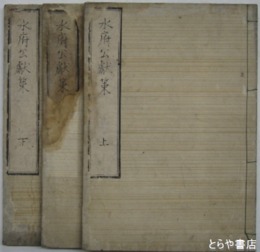 水府公献策 上
水府公献策
水府公献策 下
とらや書店